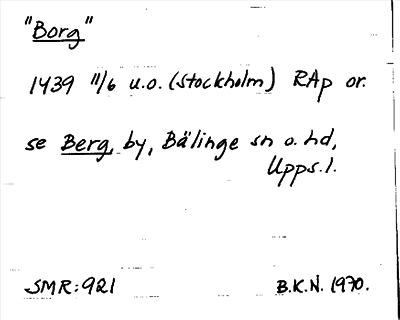 "Borg"
1439 11/6 u.o. (Stockholm) RAp or.
se Berg, by, Bälinge sn o. hd,
Upps. l.
SMR: 921
B.K.N. 1970.